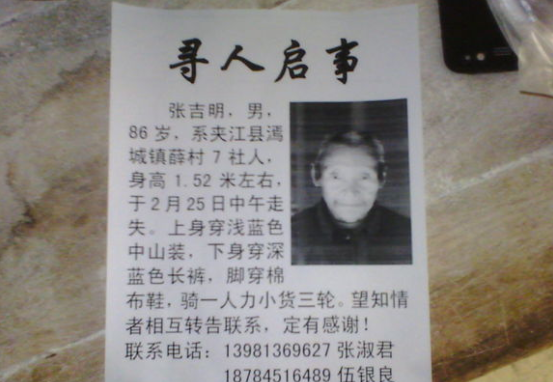 寻人启事
张吉明，男，
86 岁，系夹江县漹
城镇薛村 7 社人，
身高 1.52 米左右，
于 2 月 25 日中午走
失。上身穿浅蓝色
中山装，下身穿深
蓝色长裤，脚穿棉
布鞋，骑一人力小货三轮。望知情
者相互转告联系，定有感谢！
联系电话：13981369627 张淑君
18784516489 伍银良